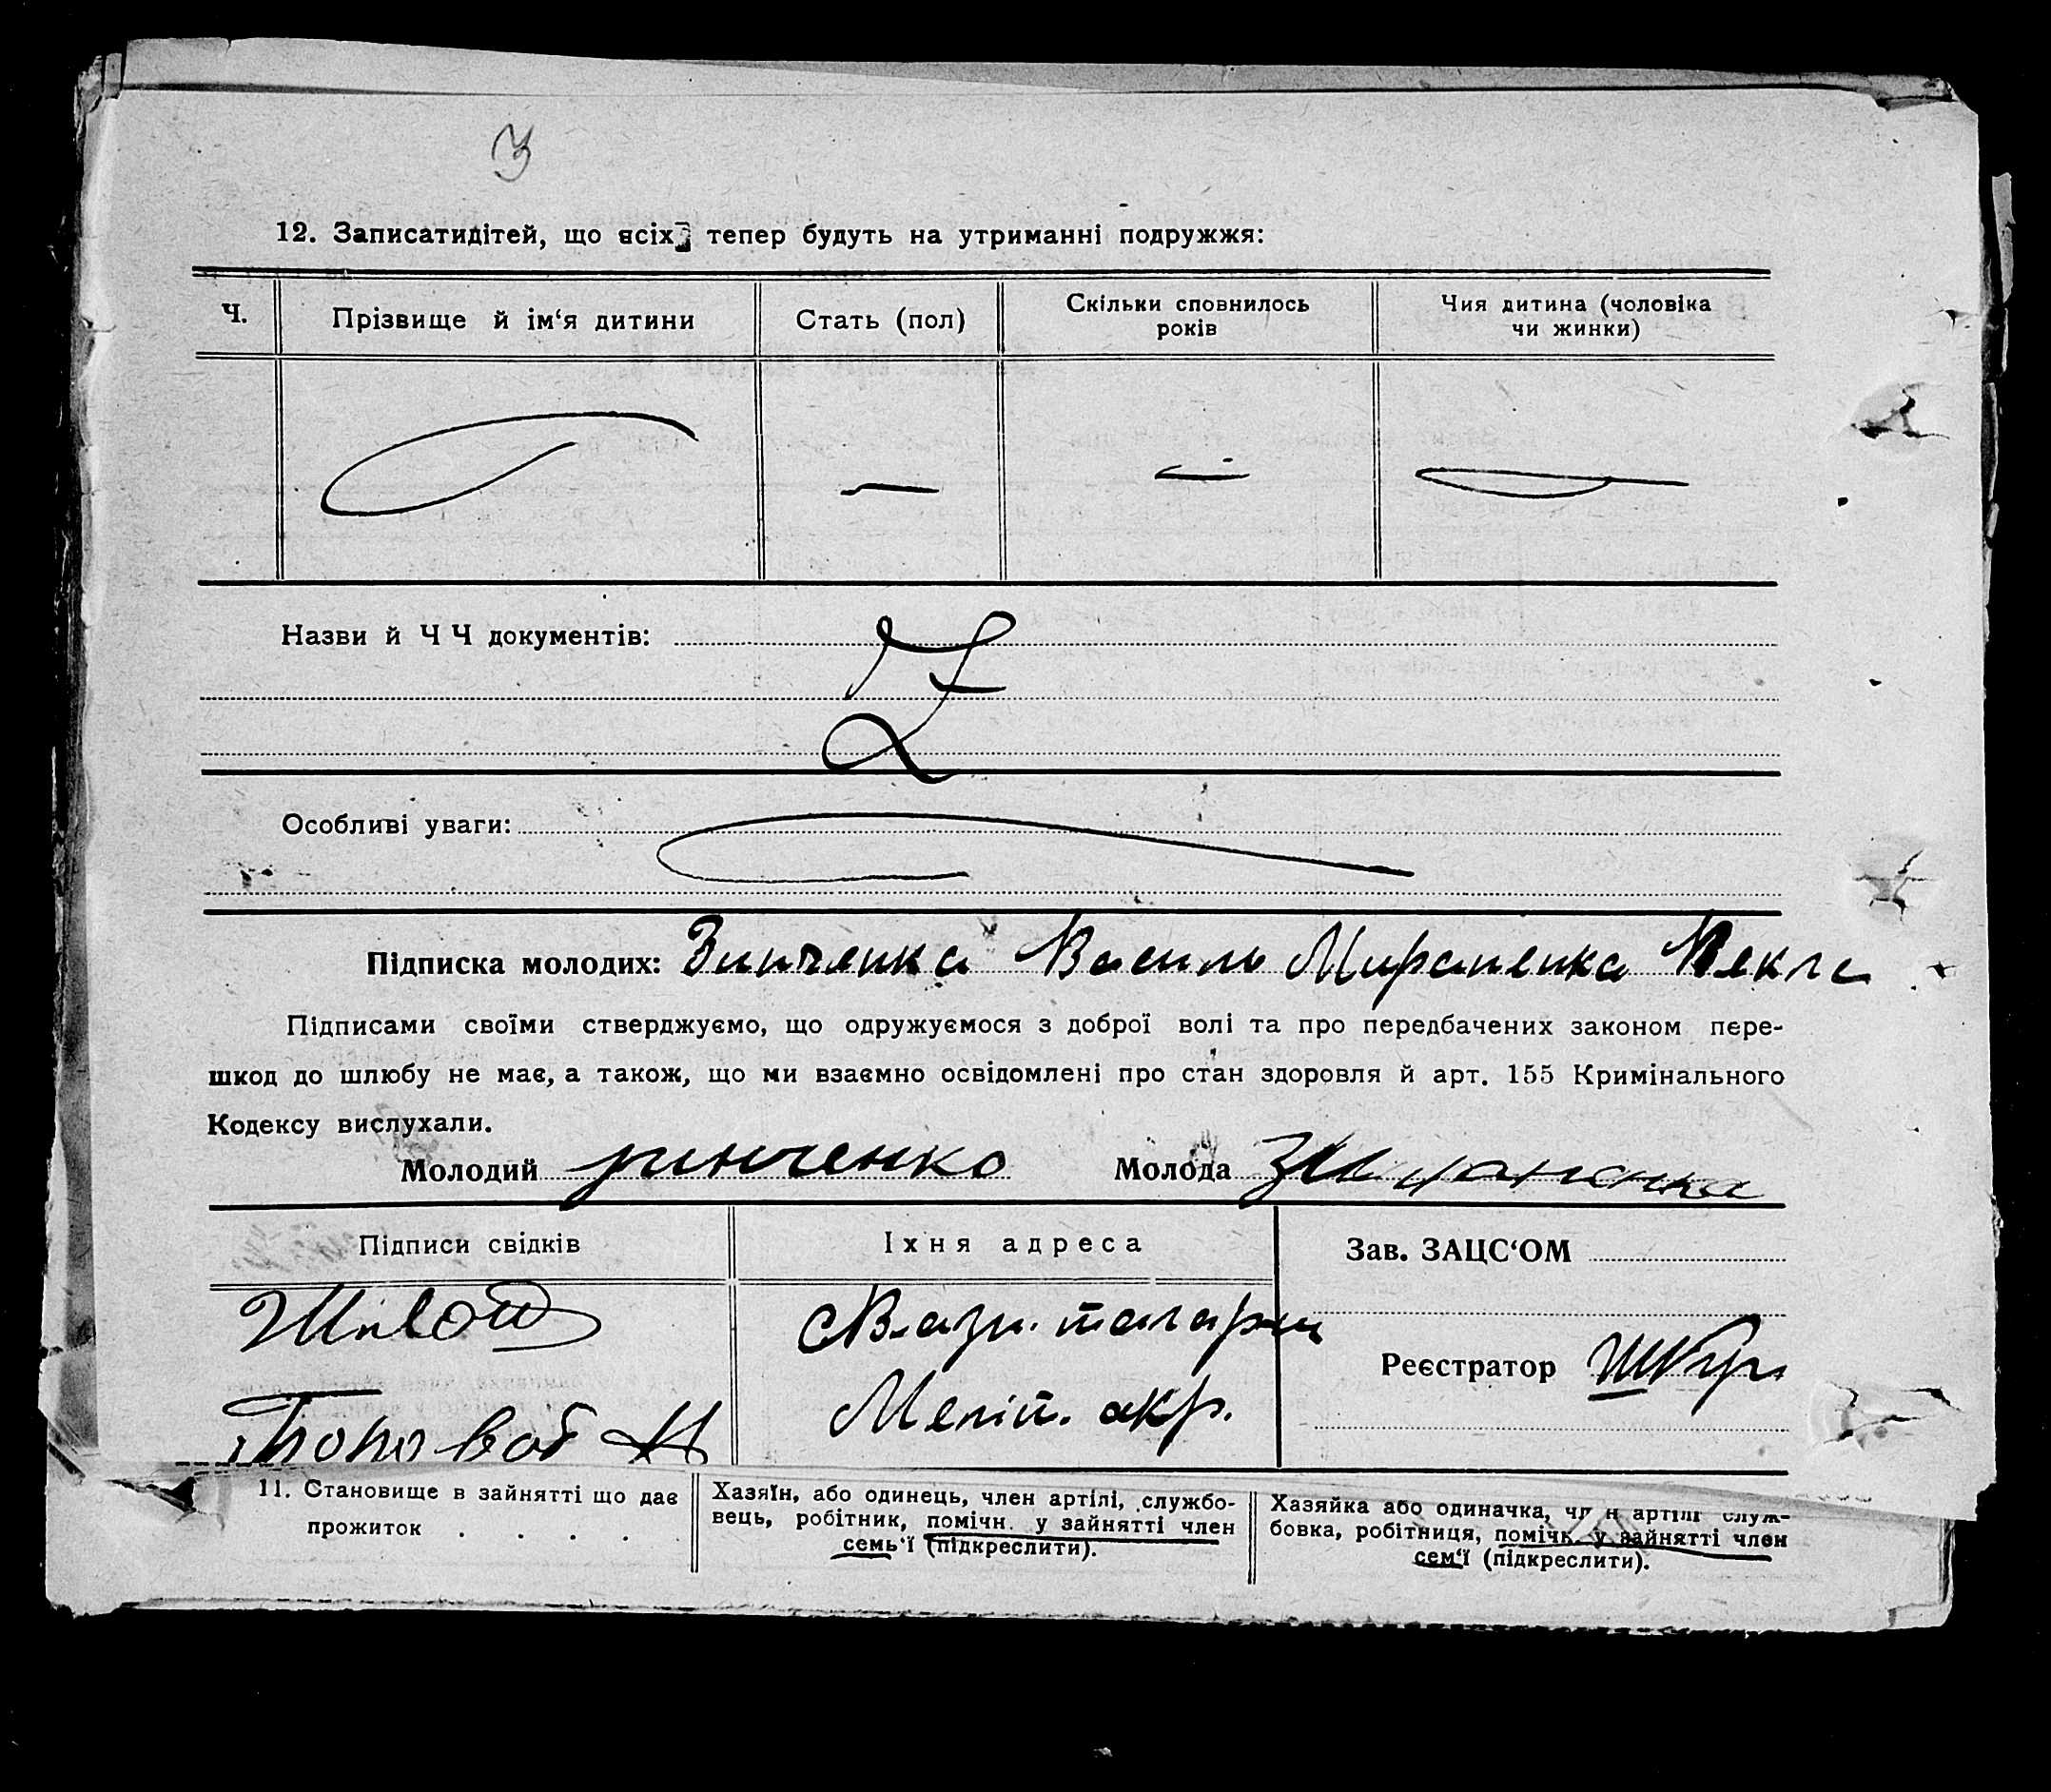 З
12. Записатидітей, що всіх тепер будуть на утриманні подружжя:
Ч.
Прізвище й ім‘я дитини
Стать (пол)
Скільки сповнилось
років
Чия дитина (чоловіка
чи жинки)
—
—
Назви й Ч Ч документів:
Z
Особливі уваги:
Підписка молодих: Зинченка Василь Мираненка Текля
Підписами своїми стверджуємо, що одружуємося з доброї волі та про передбачених законом пере-
шкод до шлюбу не має, а також, що ми взаємно освідомлені про стан здоровля й арт. 155 Кримінального
Кодексу вислухали.
Молодий зинченко Молода
Підписи свідків
Їхня адреса
Зав. ЗАЦС‘ОМ
Реєстратор
Меліт. окр.
11. Становище в зайнятті що дає
прожиток . . . .
Хазяїн, або одинець, член артілі, службо-
вець, робітник, помічн. у зайнятті член
семь‘ї (підкреслити).
Хазяйка або одиначка, член артілі служ-
бовка, робітниця, помічн. у зайнятті член
сем‘ї (підкреслити).